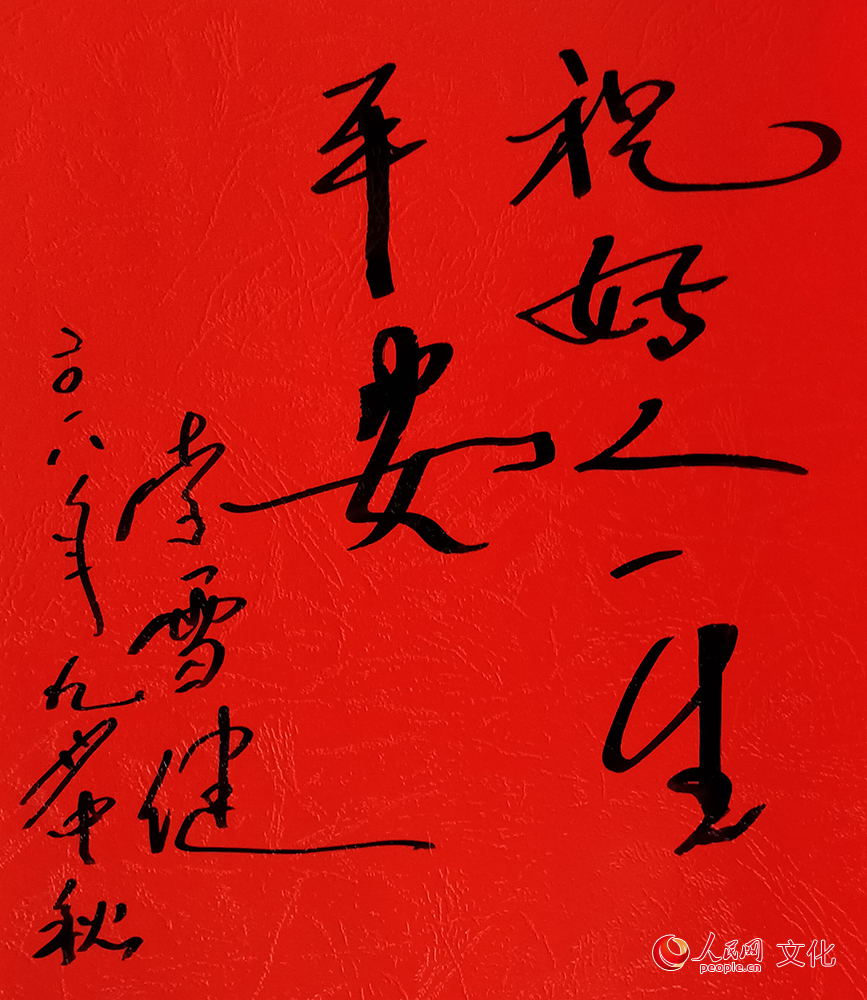 祝好人一生
平安
李雪健
二〇一八年九中秋
人民网 文化
people.cn